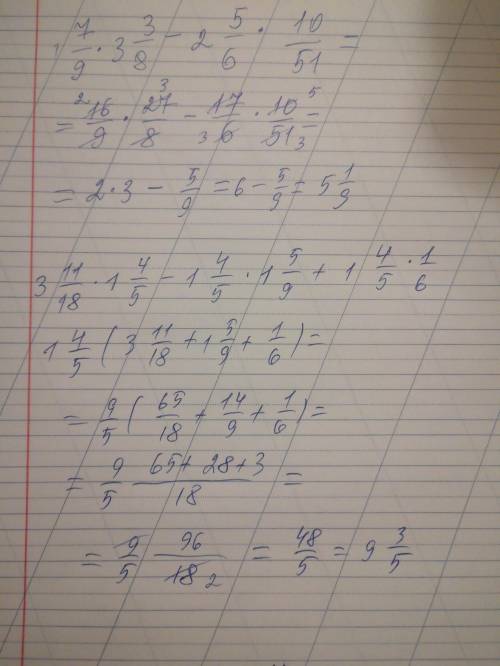 1 7/9 · 3 3/8 − 2 5/6 · 10/51 =
= 16/9 · 27/8 − 17/6 · 10/51 = 2 3 3 5 3
= 2 · 3 − 5/9 = 6 − 5/9 = 5 1/9
3 11/18 · 1 4/5 − 1 4/5 · 1 5/9 + 1 4/5 · 1/6
1 4/5 ( 3 11/18 + 1 5/9 + 1/6 ) =
= 9/5 ( 65/18 + 14/9 + 1/6 ) =
= 9/5 65 + 28 + 3/18 =
= 9/5 96/18 2 = 48/5 = 9 3/5